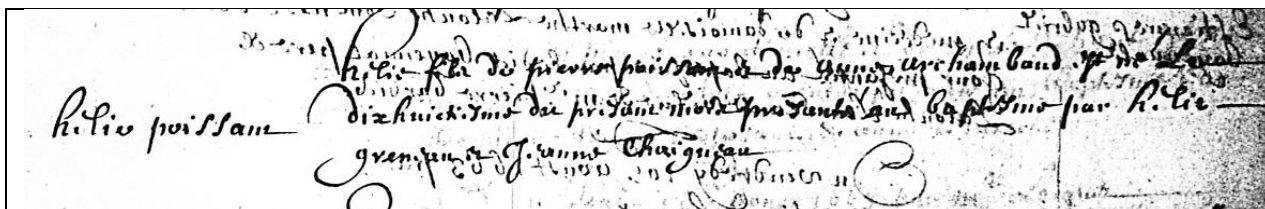 helie poissam
helie filz de pierre poissam et de anne archambaud est né le
dixhuictiesme du present mois presanté au baptesme par helie
et Jeanne Chaigneau